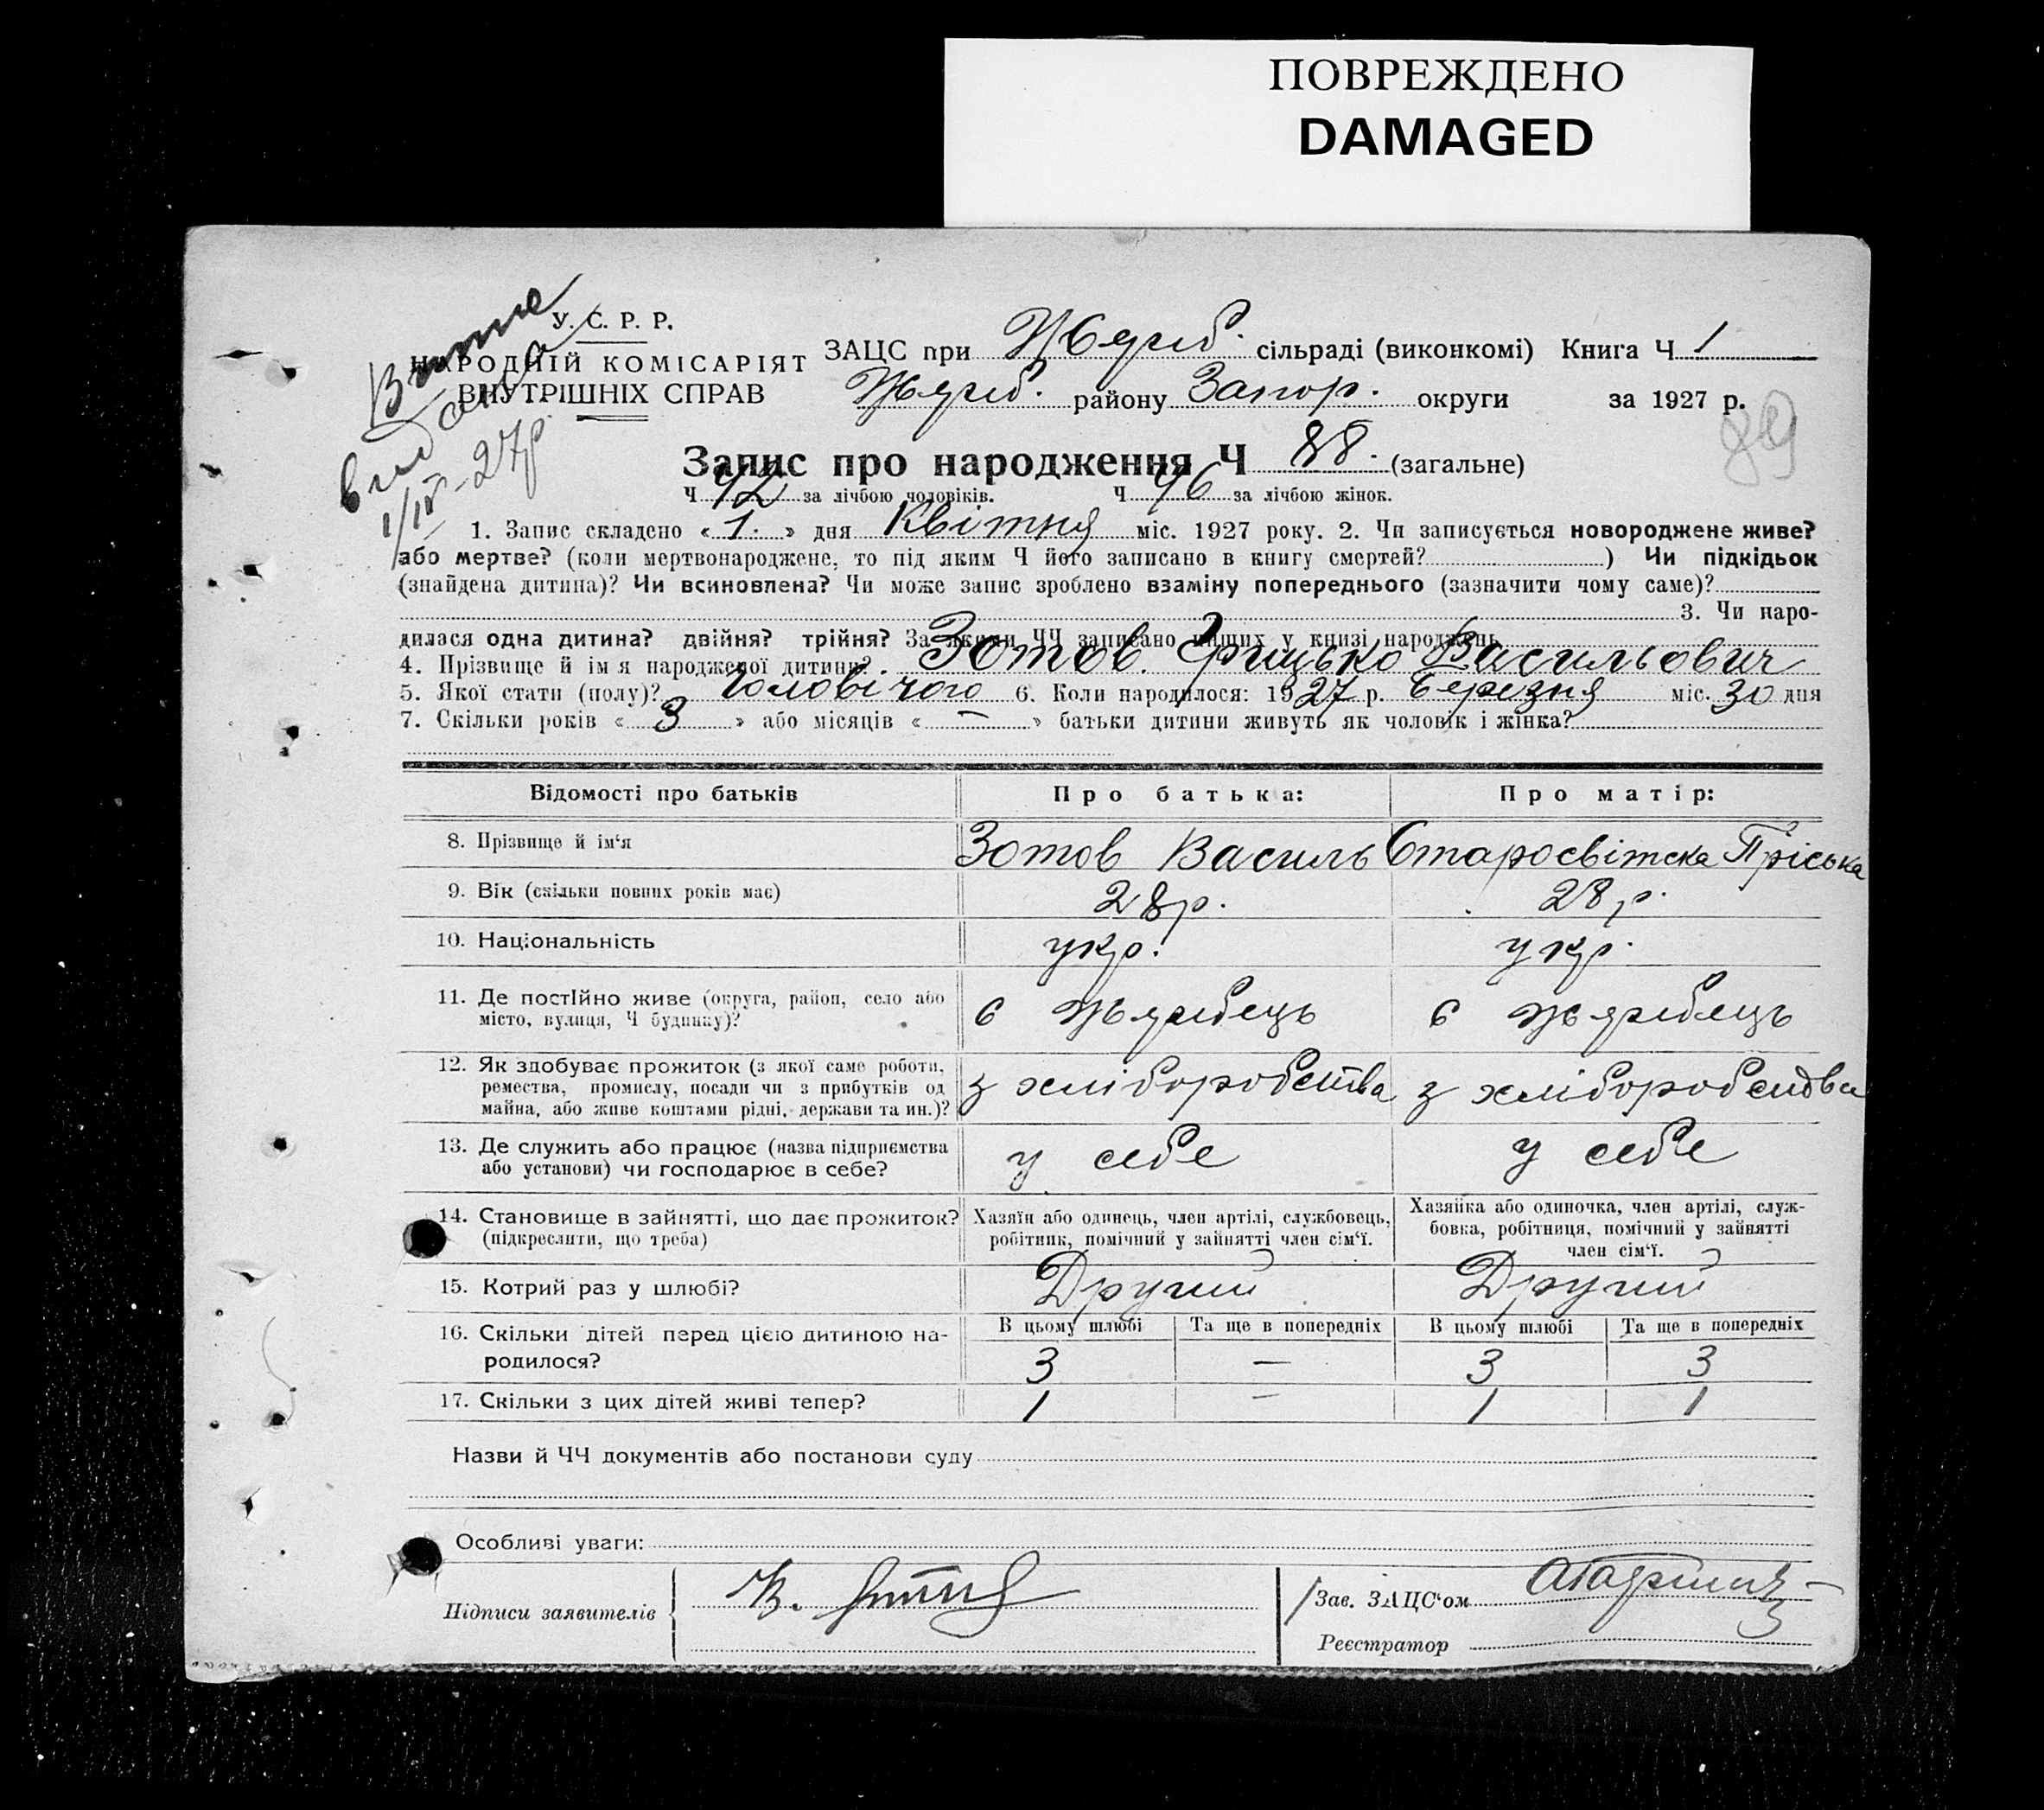 ПОВРЕЖДЕНО
DAMAGED
Виписка
видана
1/IV-27р
У. С. Р. Р.
НАРОДНІЙ КОМІСАРІЯТ
ВНУТРІШНІХ СПРАВ
ЗАЦС при Жереб. сільраді (виконкомі) Книга Ч 1
Жереб. району Запор. округи за 1927 р.
89
Запис про народження Ч 88. (загальне)
Ч 42 за лічбою чоловіків. Ч 46 за лічбою жінок.
1. Запис складено « 1. » дня Квітня міс. 1927 року. 2. Чи записується новороджене живе?
або мертве? (коли мертвонароджене, то під яким Ч його записано в книгу смертей? ) Чи підкідьок
(знайдена дитина)? Чи всиновлена? Чи може запис зроблено взаміну попереднього (зазначити чому саме)?
3. Чи наро-
дилася одна дитина? двійня? трійня? За якими ЧЧ записано инших у книзі народжень
4. Прізвище й ім я народженої дитини? Зотов. Грицько Васильович
5. Якої стати (полу)? Чоловічого 6. Коли народилося: 1927 р. березня міс. 30 дня
7. Скільки років « 3 » або місяців « — » батьки дитини живуть як чоловік і жінка?
Відомості про батьків Про батька: Про матір:
8. Прізвище й ім‘я Зотов Василь Старосвітска Пріська
9. Вік (скільки повних років має) 28р. 28р.
10. Національність укр. укр.
11. Де постійно живе (округа, район, село або
місто, вулиця, Ч будинку)? с Жеребець с Жеребець
12. Як здобуває прожиток (з якої саме роботи,
ремества, промислу, посади чи з прибутків од
майна, або живе коштами рідні, держави та ин.)? з хліборобства з хліборобства
13. Де служить або працює (назва підприємства
або установи) чи господарює в себе? у себе у себе
14. Становище в зайнятті, що дає прожиток?
(підкреслити, що треба)
Хазяїн або одинець, член артілі, службовець,
робітник, помічний у зайнятті член сім‘ї.
Хазяйка або одиночка, член артілі, служ-
бовка, робітниця, помічний у зайнятті
член сім‘ї.
15. Котрий раз у шлюбі? Другий Другий
16. Скільки дітей перед цією дитиною на-
родилося?
В цьому шлюбі Та ще в попередніх В цьому шлюбі Та ще в попередніх
3 — 3 3
17. Скільки з цих дітей живі тепер? 1 — 1 1
Назви й ЧЧ документів або постанови суду
Особливі уваги:
Підписи заявителів В.
Зав. ЗАЦС‘ом
Реєстратор